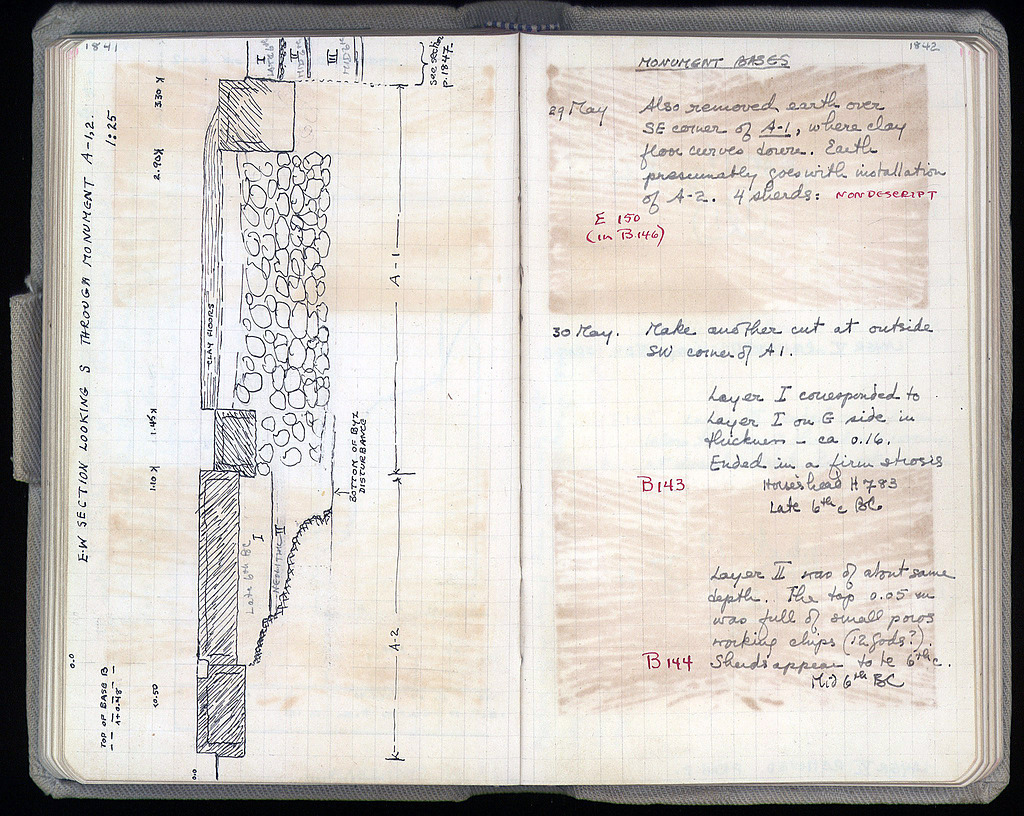 1841
E-W SECTION LOOKING S THROUGH MONUMENT A-1,2.
1:25
3.30 K
2.90 K
1.45 K
1.10 K
0.0
K0.50
TOP OF BASE B
0.0
I
LATE 6th
II
MID 6th
III
MID 6th
see section
p. 1847
CLAY FLOORS
A-1
BOTTOM OF BYZ
DISTURBANCE
I
Late 6th BC
II
NEOLITHIC
A-2
1842
MONUMENT BASES
29 May Also removed earth over
SE corner of A-1, where clay
floor curves down. Earth
presumably goes with installation
of A-2. 4 sherds: NONDESCRIPT
E 150
(in B 146)
30 May. Make another cut at outside
SW corner of A1.
Layer I corresponded to
Layer I on G side in
thickness – ca 0.16.
Ended in a firm strosis
B 143 Horsehead H 783
Late 6th c BC.
Layer II was of about same
depth. The top 0.05 m
was full of small poros
working chips (12 Gods?).
B 144 Sherds appear to be 6th c.
Mid 6th BC